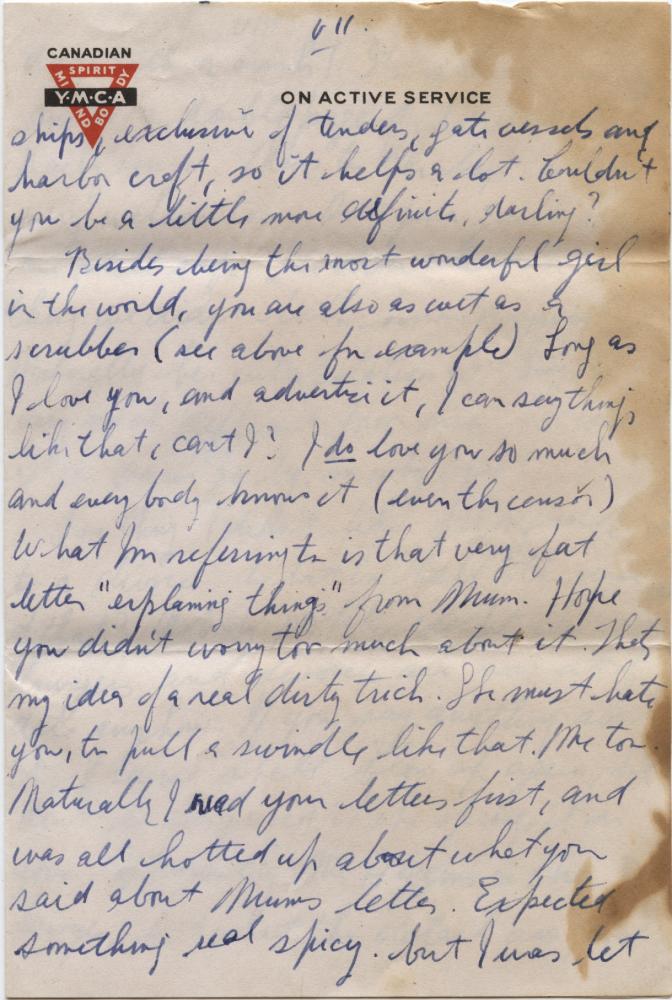 VII.
CANADIAN
SPIRIT
MIND
BODY
Y·M·C·A
ON ACTIVE SERVICE
ships, exclusive of tenders, gate vessels and
harbor craft, so it helps a lot. Couldn't
you be a little more definite, darling?
Besides being the most wonderful girl
in the world, you are also as cute as a
scrubber (see above for example) Long as
I love you, and advertise it, I can say things
like that, can't I? I do love you so much
and everybody knows it (even the censor)
What I'm referring to is that very fat
letter "explaining things" from Mum. Hope
you didn't worry too much about it. Thats
my idea of a real dirty trick. She must hate
you, to pull a swindle like that. Me too.
Naturally I read your letters first, and
was all hotted up about what you
said about Mums letter. Expected
something real spicy. but I was let